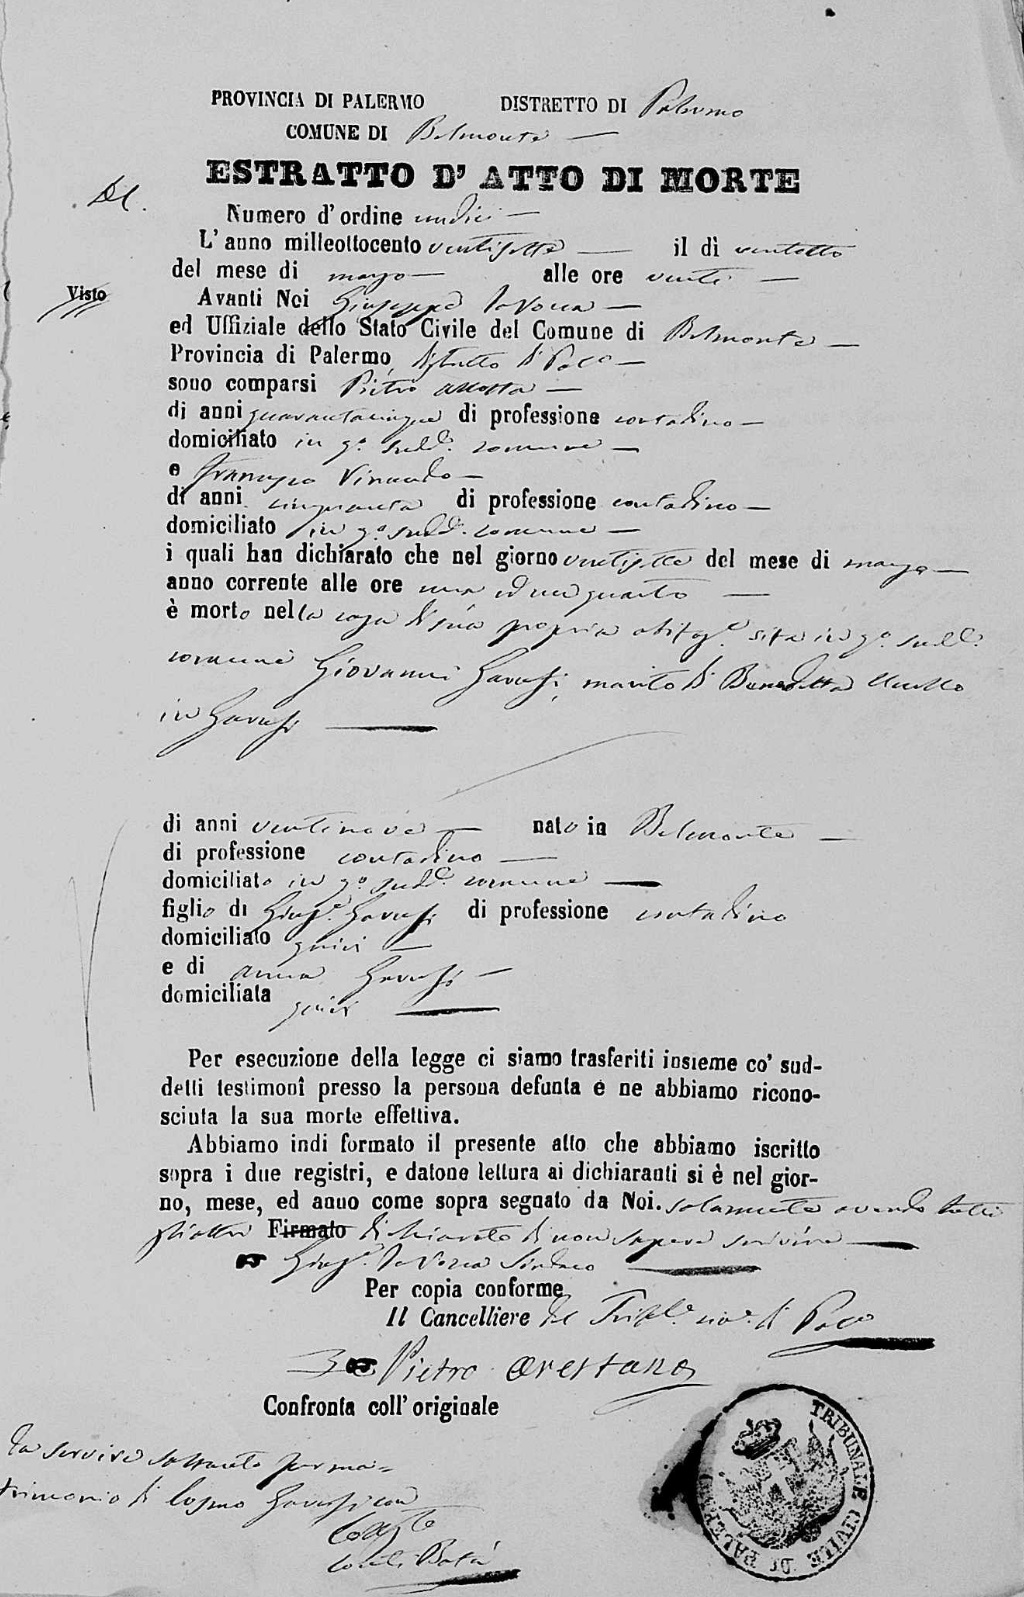 PROVINCIA DI PALERMO DISTRETTO DI Palermo
COMUNE DI Belmonte
ESTRATTO D' ATTO DI MORTE
Numero d'ordine undici
L'anno milleottocento ventisette il dì ventotto
del mese di marzo alle ore venti
Visto
Avanti Noi Giuseppe La Vocca
ed Uffiziale dello Stato Civile del Comune di Belmonte
Provincia di Palermo, Distretto di Pal.º
sono comparsi Pietro
di anni quarantacinque di professione contadino
domiciliato in q.º sudd.º comune
e Francesco
di anni cinquanta di professione contadino
domiciliato in q.º sudd.º comune
i quali han dichiarato che nel giorno ventisette del mese di marzo
anno corrente alle ore una ed un quarto
è morto nella casa di sua propria abitaz.e sita in q.º sudd.º
comune Giovanni marito di Benedetta
in
di anni ventinove nato in Belmonte
di professione contadino
domiciliato in q.º sudd.º comune
figlio di Gius.e di professione contadino
domiciliato quivi
e di anna
domiciliata quivi
Per esecuzione della legge ci siamo trasferiti insieme co' sud-
detti testimonî presso la persona defunta e ne abbiamo ricono-
sciuta la sua morte effettiva.
Abbiamo indi formato il presente atto che abbiamo iscritto
sopra i due registri, e datone lettura ai dichiaranti si è nel gior-
no, mese, ed anno come sopra segnato da Noi. solamente avendo tutti
gli altri Firmato dichiarato di non sapere scrivere
Gius.e La Vocca Sindaco
Per copia conforme
Il Cancelliere del Trib.le civ.e di Pal.º
Pietro Orestano
Confronta coll' originale
da servire soltanto per ma-
trimonio di Cosmo con
TRIBUNALE CIVILE DI PALERMO